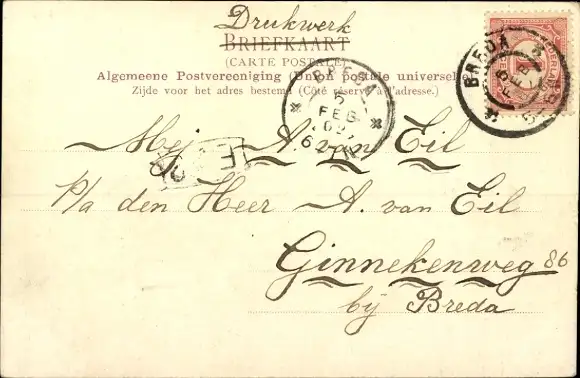 Drukwerk
BRIEFKAART
(CARTE POSTALE)
Algemeene Postvereeniging (Union postale universelle)
Zijde voor het adres bestemd (Côté réservé à l'adresse).
BREDA
5
FEB
BREDA
FEB
Mej. A. van Eil
P/a den Heer A. van Eil
Ginnekenweg 86
bij Breda